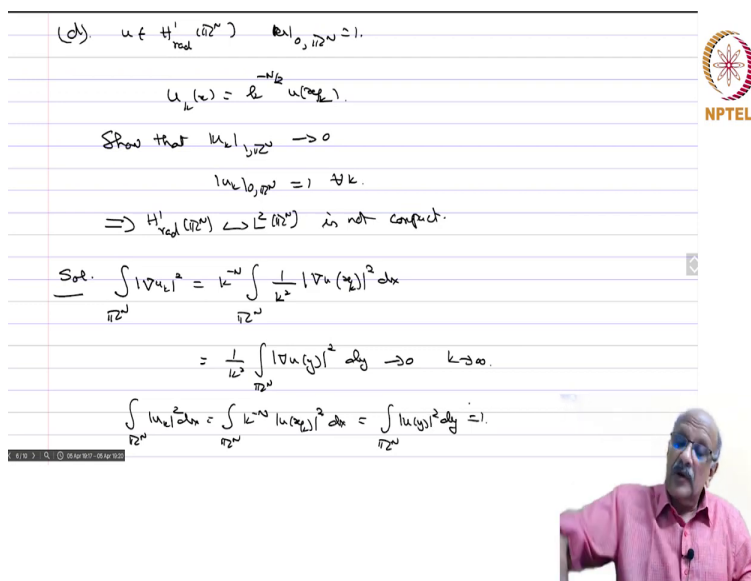 (d). u ∈ H¹_rad (ℝᴺ) |u|_{0,ℝᴺ} = 1.
u_k(x) = k^{-N/2} u(x/k).
Show that |u_k|_{1,ℝᴺ} → 0
|u_k|_{0,ℝᴺ} = 1 ∀k.
⇒ H¹_rad (ℝᴺ) ↪ L²(ℝᴺ) is not compact.
Sol. ∫_{ℝᴺ} |∇u_k|² = k^{-N} ∫_{ℝᴺ} 1/k² |∇u(x/k)|² dx
= 1/k² ∫_{ℝᴺ} |∇u(y)|² dy → 0 k→∞.
∫_{ℝᴺ} |u_k|² dx = ∫_{ℝᴺ} k^{-N} |u(x/k)|² dx = ∫_{ℝᴺ} |u(y)|² dy = 1.
NPTEL
6/10 05 Apr 19:17 - 05 Apr 19:20